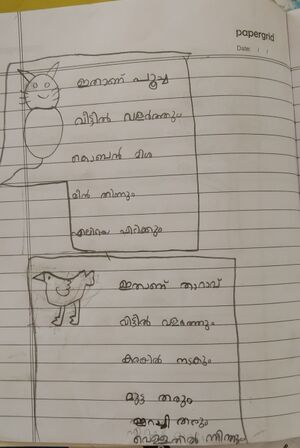 papergrid
Date: / /
ഇതാണ് പൂച്ച
വീട്ടിൽ വളർത്തും
മീൻ തിന്നും
എലിയെ പിടിക്കും
ഇതാണ് താറാവ്
വീട്ടിൽ വളർത്തും
കരകിൽ നടകും
മുട്ട തരും
ഇറച്ചി തരും
വെള്ളത്തിൽ നീന്തും